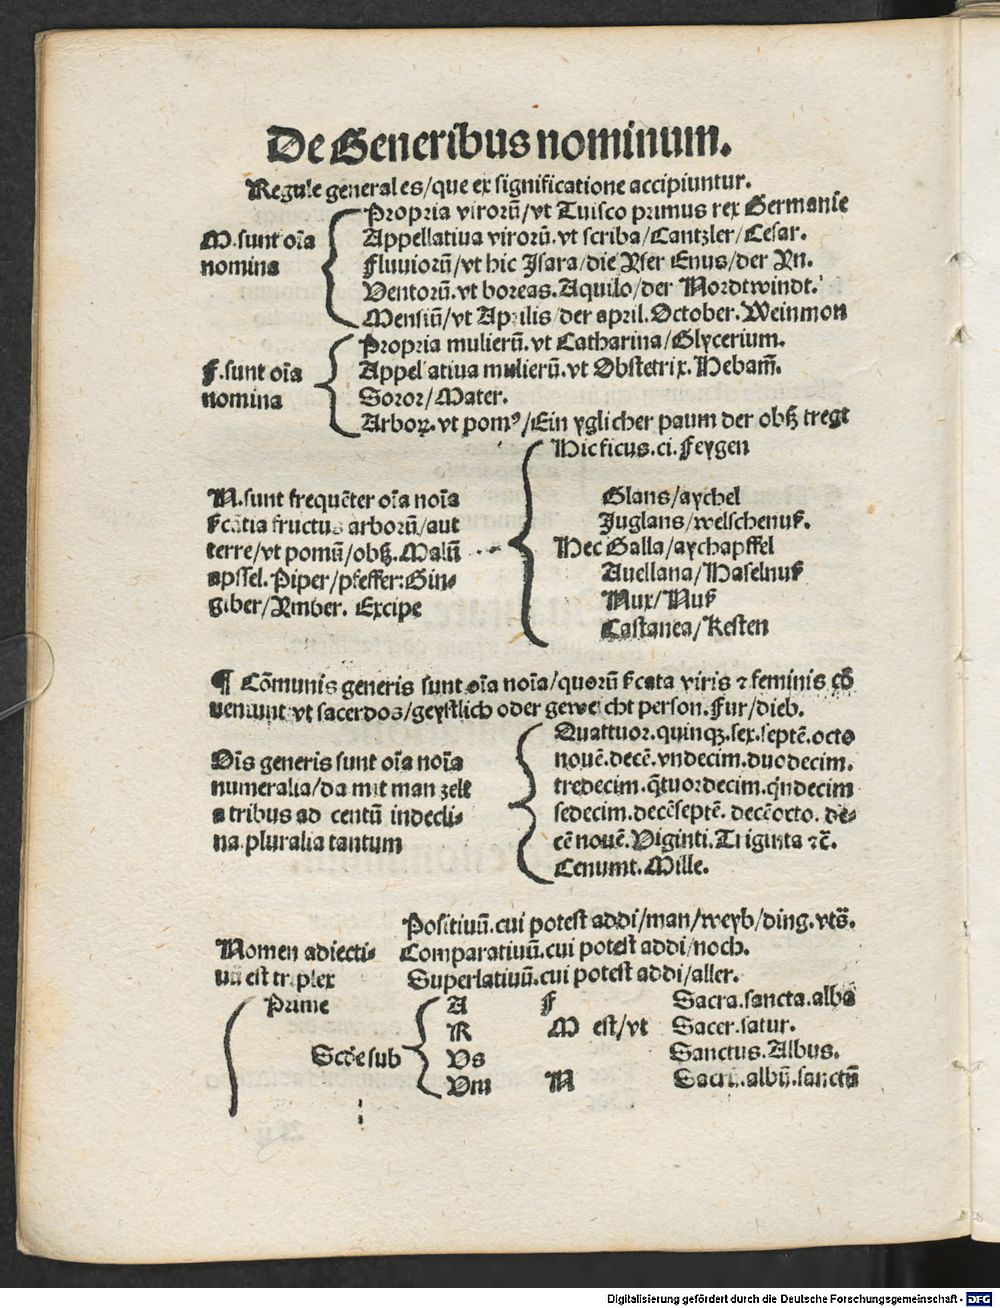 De Generibus nominum.
Regule generales/que ex significatione accipiuntur.
M. sunt oīa
nomina
Propria virorū/vt Tuisco primus rex Germanie
Appellatiua virorū. vt scriba/Cantzler/Cesar.
Fluuiorū/vt hic Isara/die Yser Enus/der Yn.
Ventorū. vt boreas. Aquilo/der Nordtwindt.
Mensiū/vt Aprilis/der april. October. Weinmon
F. sunt oīa
nomina
Propria mulierū. vt Catharina/Glycerium.
Appellatiua mulierū. vt Obstetrix. Hebam̄.
Soror/Mater.
Arboꝝ. vt pomꝰ/Ein yglicher paum der obß tregt
N. sunt frequēter oīa noīa
ſcātia fructus arborū/aut
terre/vt pomū/obß. Malū
apffel. Piper/pfeffer: Gin-
giber/Ymber. Excipe
Hic ficus. ci. Feygen
Glans/aychel
Juglans/welschenuß.
Hec Galla/aychapffel
Auellana/Haselnuß
Nux/Nuß
Castanea/Kesten
¶ Cōmunis generis sunt oīa noīa/quorū ſcata viris ⁊ feminis cō
ueniunt vt sacerdos/geystlich oder geweicht person. Fur/dieb.
Oīs generis sunt oīa noīa
numeralia/da mit man zelt
a tribus ad centū indecli-
na pluralia tantum
Quattuor. quinqꝫ. sex. septē. octo
nouē. decē. vndecim. duodecim.
tredecim. q̄tuordecim. qīndecim
sedecim. decēseptē. decēocto. de-
cē nouē. Viginti. Triginta ⁊c̄.
Centum. Mille.
Nomen adiecti-
uū est triplex
Positiuū. cui potest addi/man/weyb/ding. vts̄.
Comparatiuū. cui potest addi/noch.
Superlatiuū. cui potest addi/aller.
Prime
Scd̄e sub
A F Sacra. sancta. alba
R M est/vt Sacer. satur.
Vs Sanctus. Albus.
Vm N Sacrū. albū. sanctū
Digitalisierung gefördert durch die Deutsche Forschungsgemeinschaft - DFG